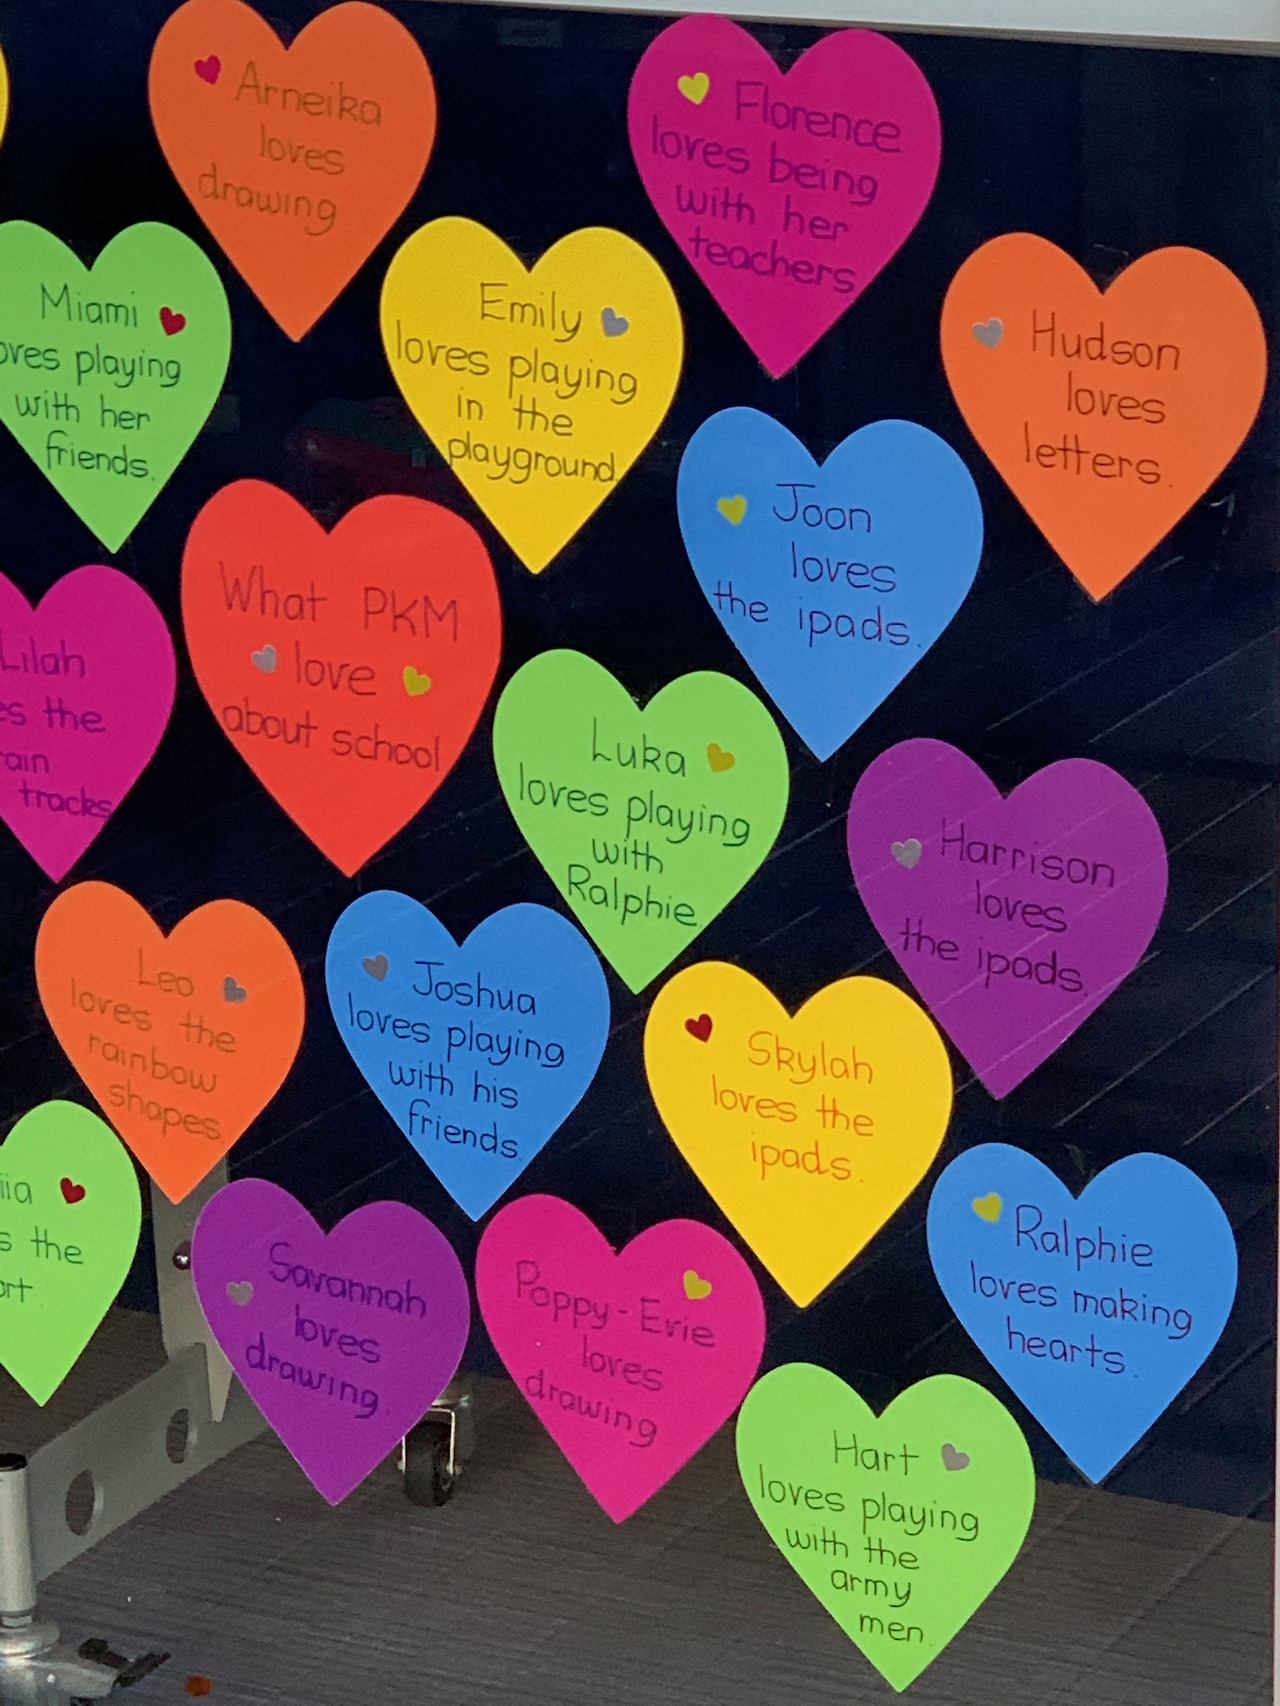 Arneika
loves
drawing
Florence
loves being
with her
teachers
Miami
playing
with her
friends.
Emily
loves playing
in the
playground.
Hudson
loves
letters.
Joon
loves
the ipads.
What PKM
love
about school
Lilah
the
tracks
Luka
loves playing
with
Ralphie
Harrison
loves
the ipads.
Leo
loves the
rainbow
shapes.
Joshua
loves playing
with his
friends.
Skylah
loves the
ipads.
the
Savannah
loves
drawing.
Poppy-Evie
loves
drawing
Ralphie
loves making
hearts.
Hart
loves playing
with the
army
men.